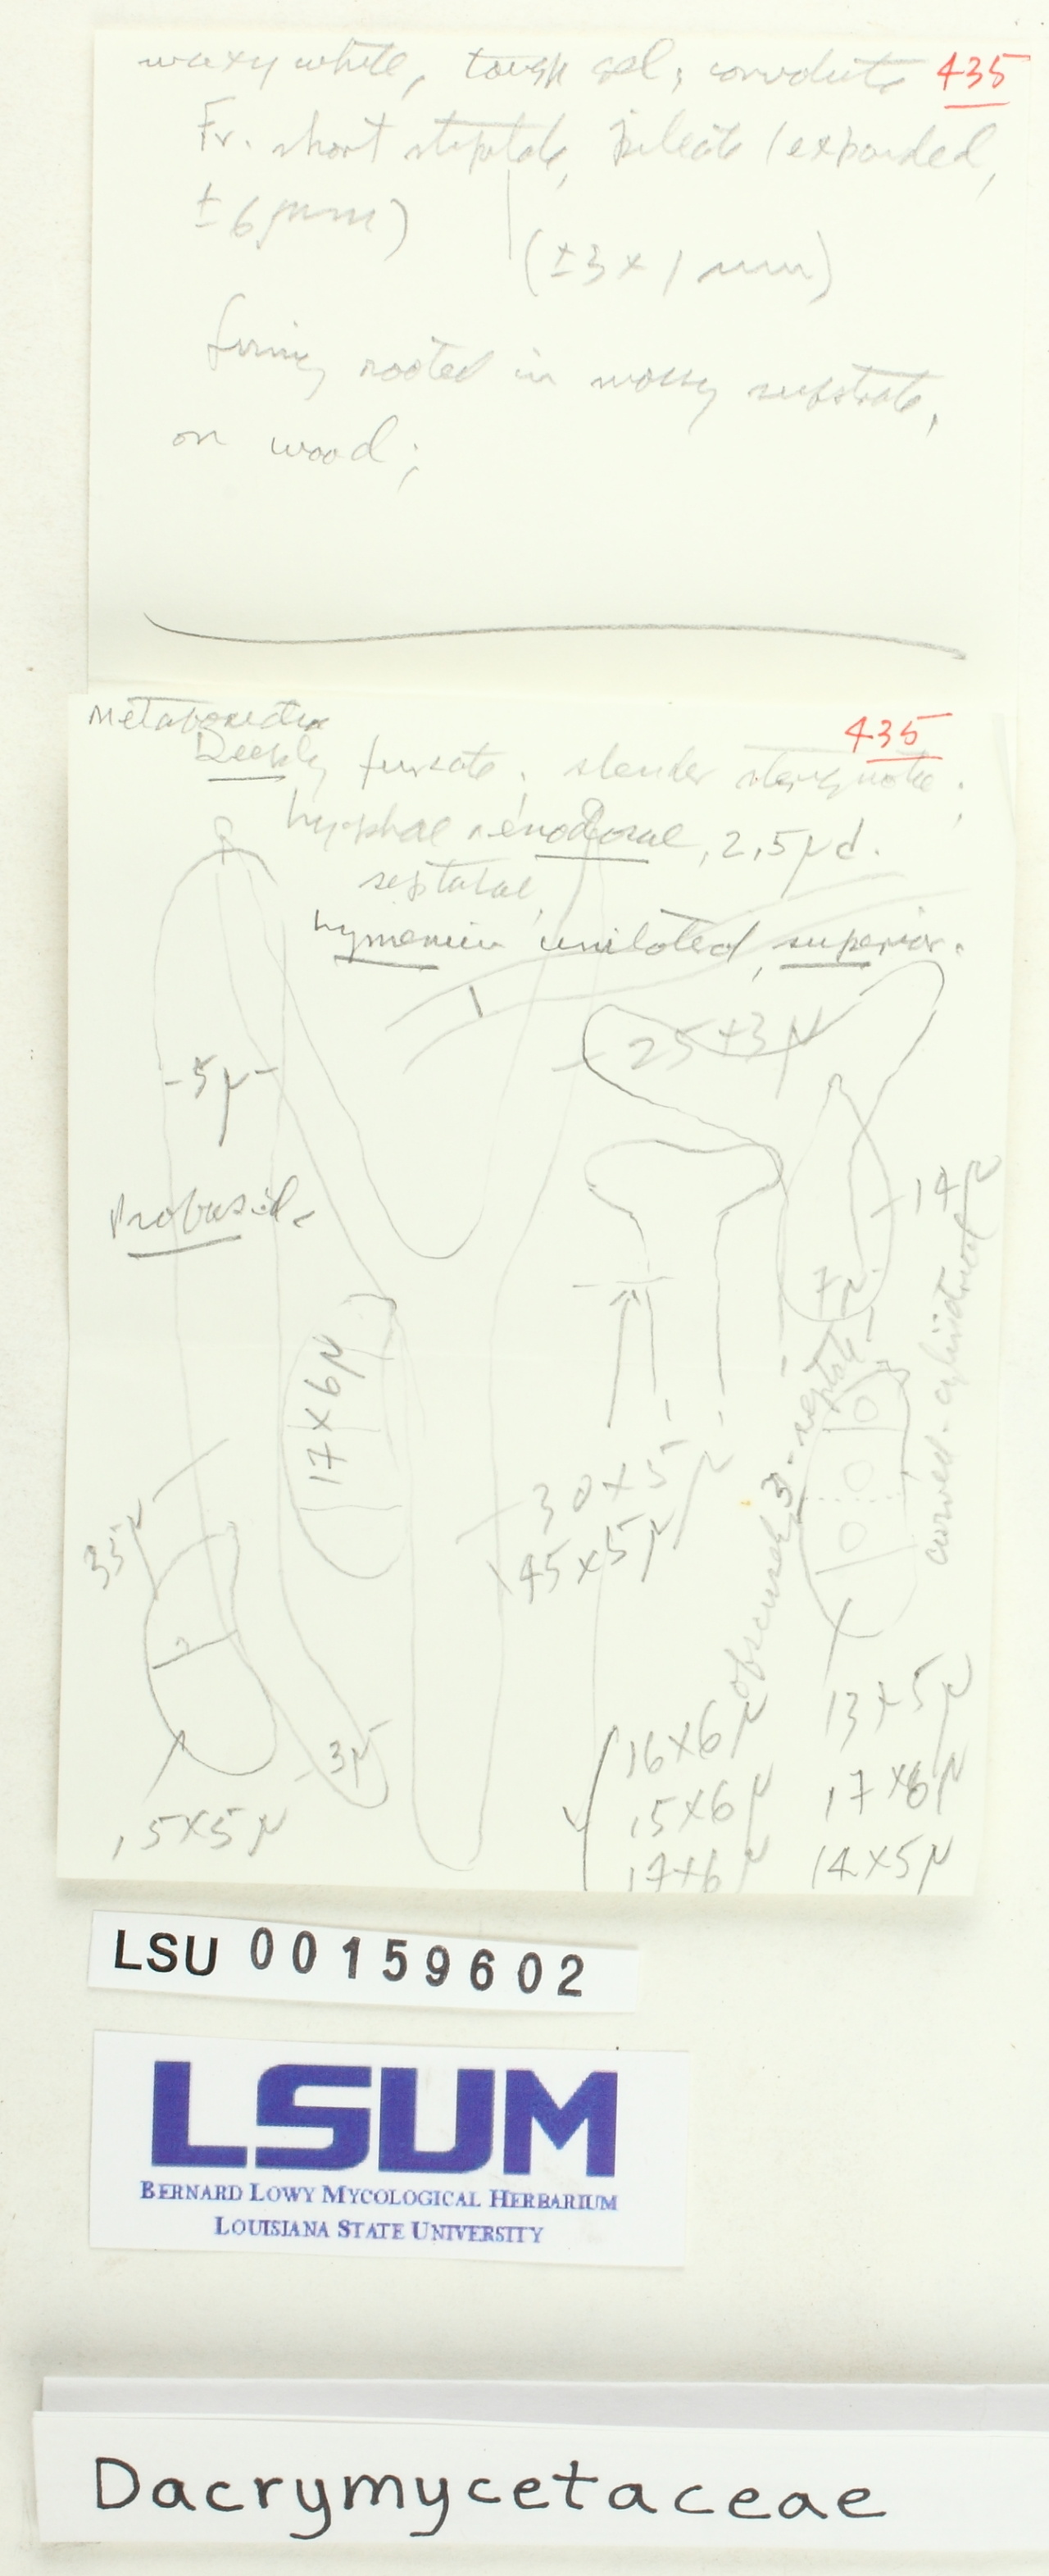 waxy white, tough gel; convolute 435
Fr. short stipitate, pileate (expanded,
±6 mm)
(±3 x 1 mm)
firmly rooted in mossy substrate,
on wood;
Metabasidia 435
Deeply furcate, slender sterigmata;
hyphae 2,5μ d.
septate,
hymenium unilateral, superior.
25 x 3 μ
-5μ-
14μ
Probasid.
7μ
curved-cylindrical
17 x 6μ
obscurely 3-septate
30 x 5 μ
45 x 5 μ
35μ
3μ
15 x 5 μ
16 x 6 μ
15 x 6 μ
17 x 6 μ
13 x 5 μ
17 x 6 μ
14 x 5 μ
LSU 00159602
LSUM
BERNARD LOWY MYCOLOGICAL HERBARIUM
LOUISIANA STATE UNIVERSITY
Dacrymycetaceae